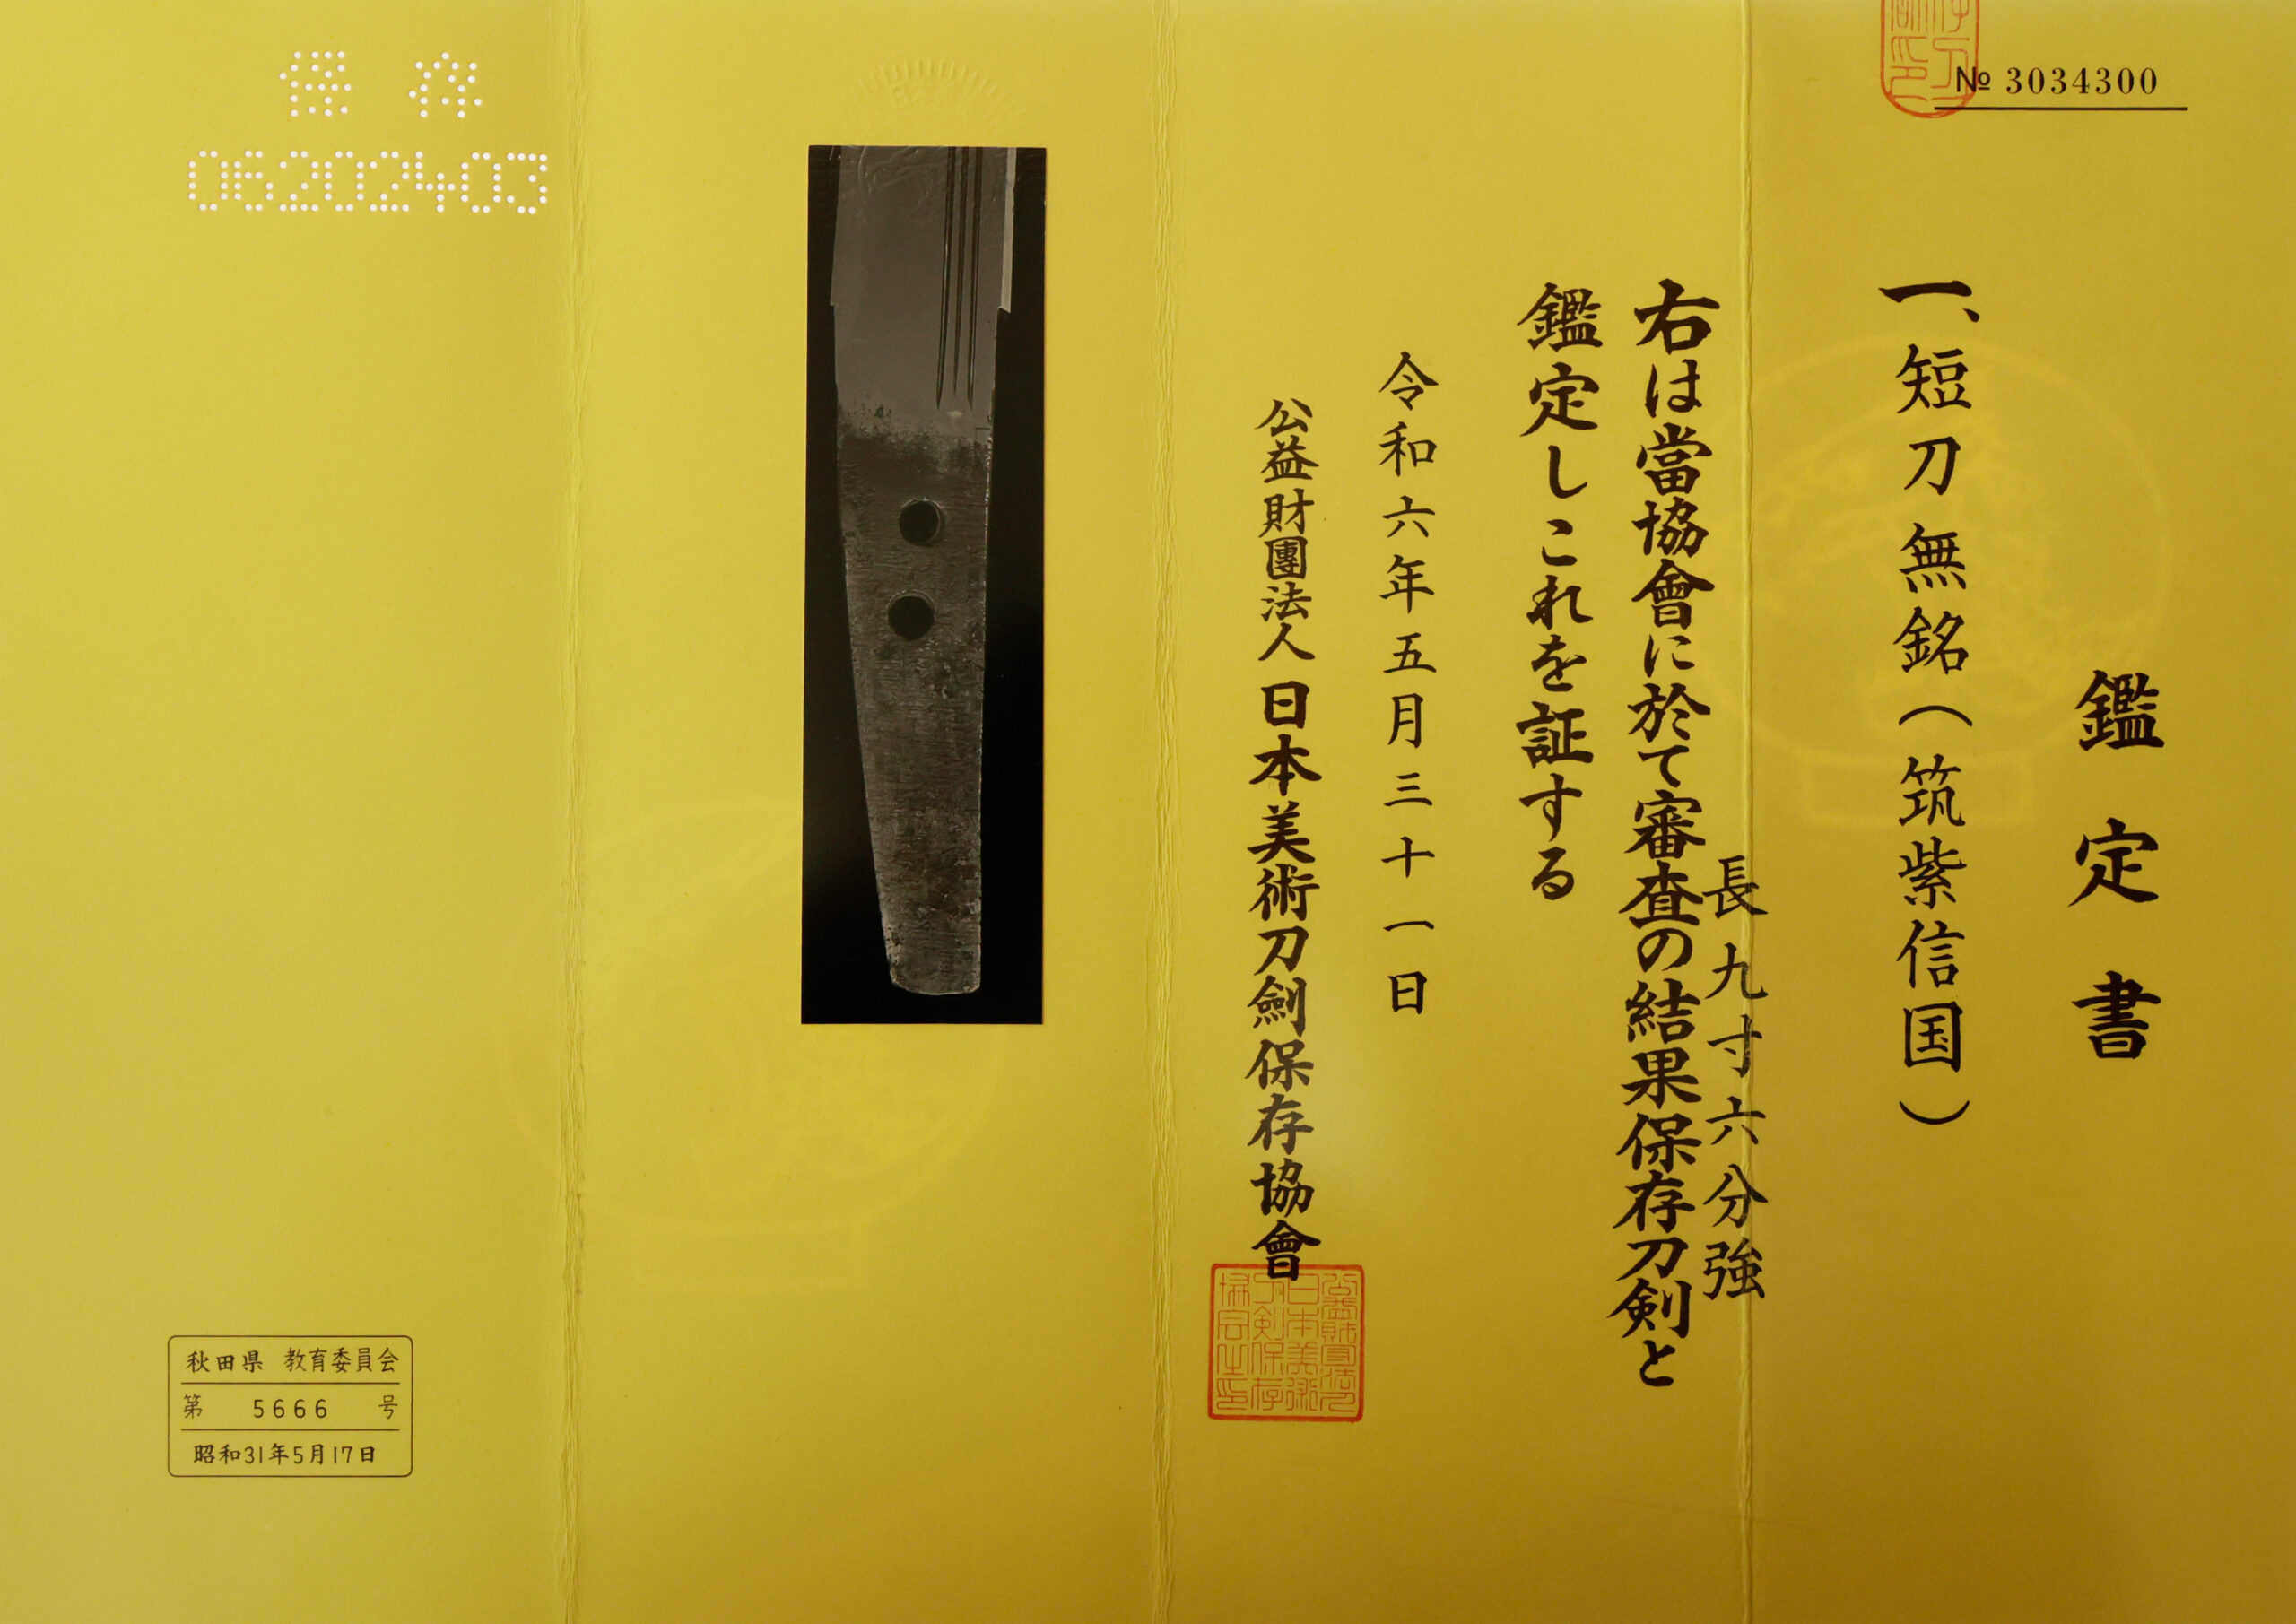 № 3034300
鑑定書
一、短刀 無銘(筑紫信国)
長九寸六分強
右は當協會に於て審査の結果保存刀剣と
鑑定しこれを証する
令和六年五月三十一日
公益財團法人 日本美術刀劍保存協會
保存
06202403
秋田県 教育委員会
第 5666 号
昭和31年5月17日